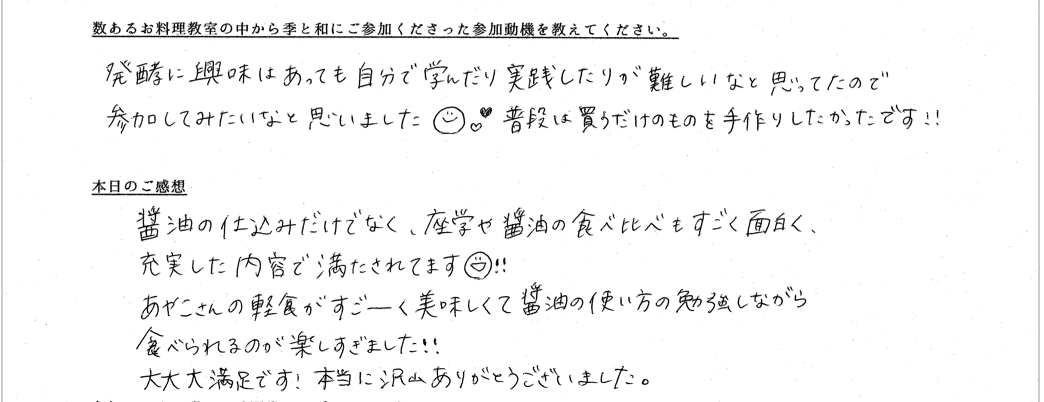 数あるお料理教室の中から季と和にご参加くださった参加動機を教えてください。
発酵に興味はあっても自分で学んだり実践したりが難しいなと思ってたので
参加してみたいなと思いました 普段は買うだけのものを手作りしたかったです!!
本日のご感想
醤油の仕込みだけでなく、座学や醤油の食べ比べもすごく面白く、
充実した内容で満たされてます!!
あやこさんの軽食がすごーく美味しくて醤油の使い方の勉強しながら
食べられるのが楽しすぎました!!
大大大満足です!本当に沢山ありがとうございました。